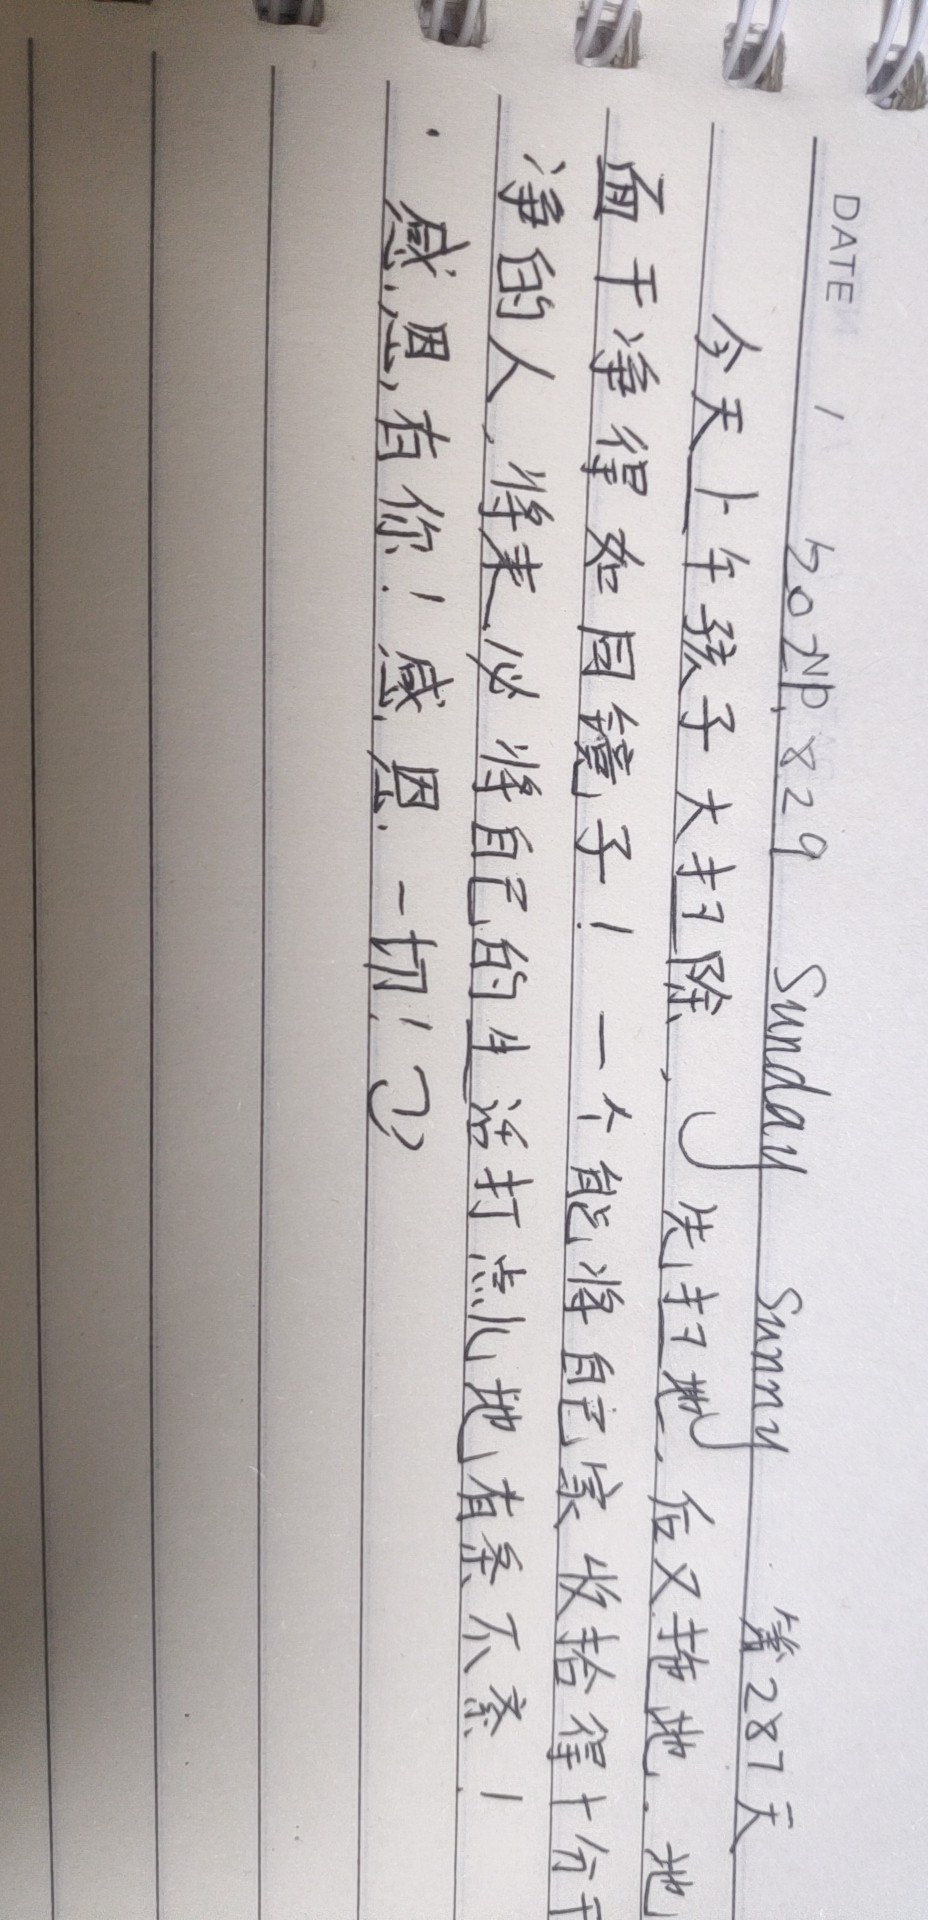 DATE /
8 29 Sunday Sunny 第287天
今天上午孩子大扫除,先扫地,后又拖地.地
面干净得如同镜子!一个能将自己家收拾得十分干
净的人,将来必将自己的生活打点儿地有条不紊!
感恩有你!感恩一切!